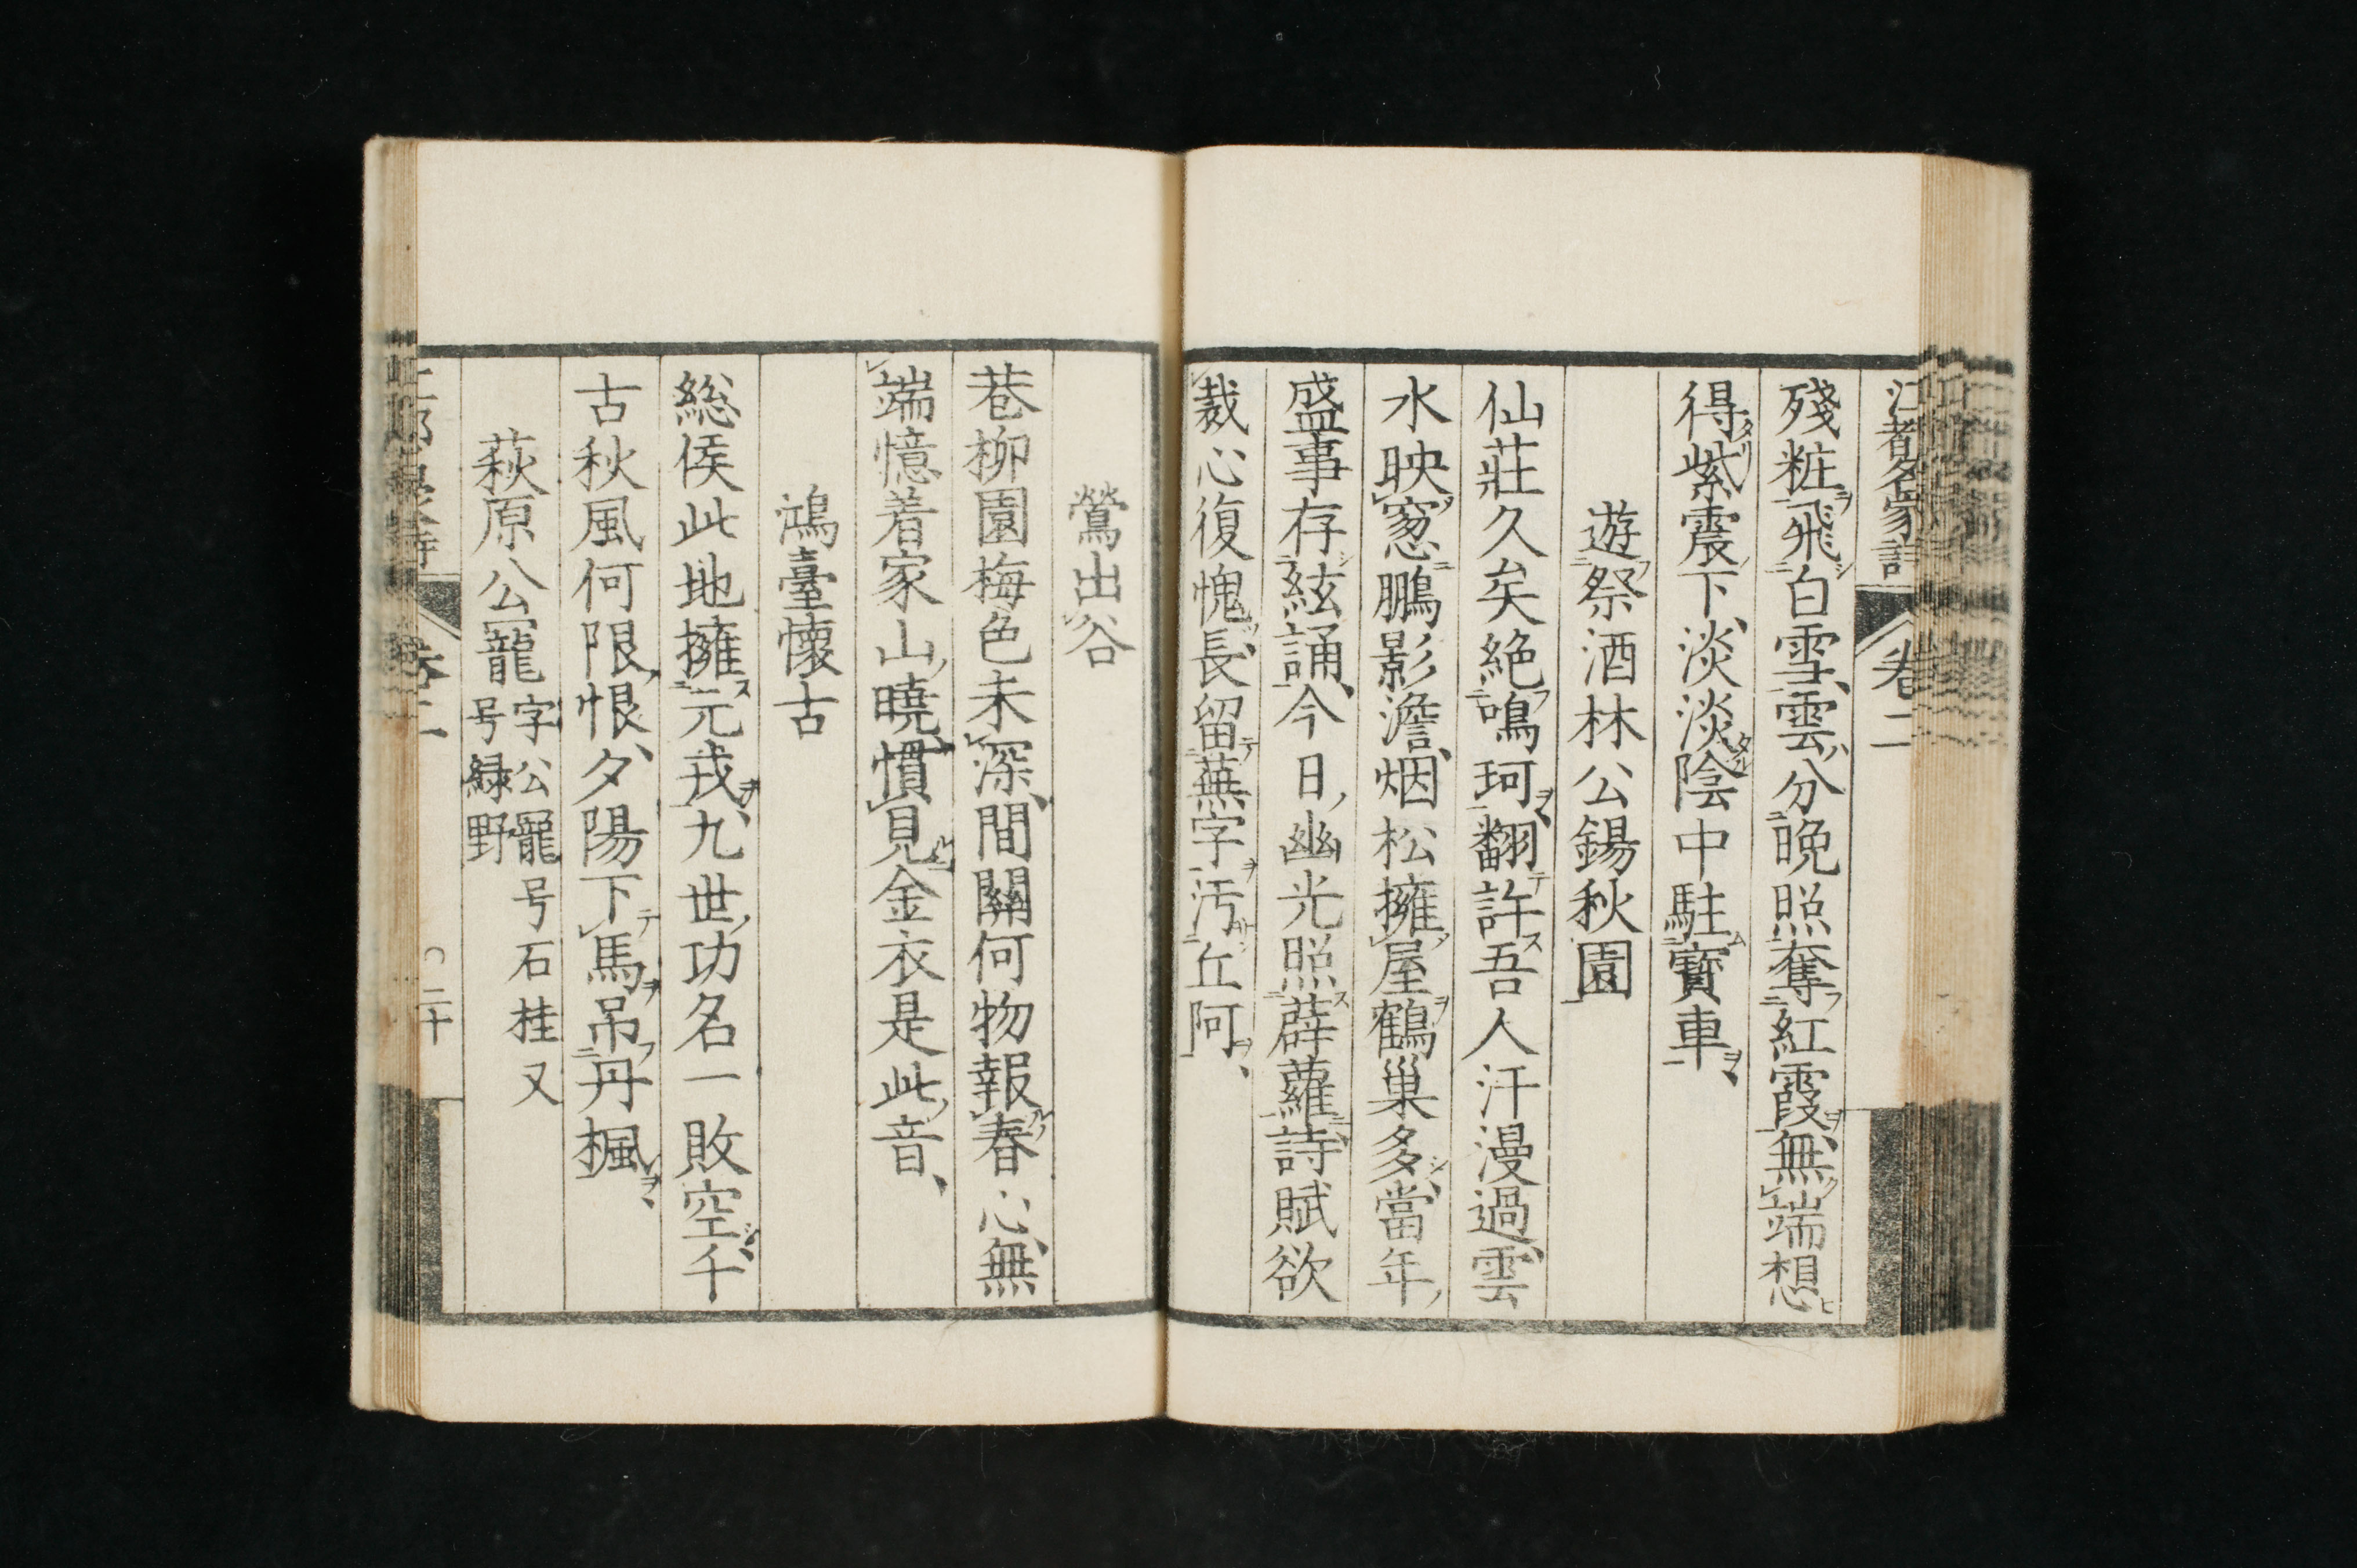 江都名家詩 卷二
殘粧飛白雪雲分晩照奪紅霞無端想
得紫宸下淡淡陰中駐寶車
遊祭酒林公錫秋園
仙莊久矣絶鳴珂翻許吾人汗漫過雲
水映窓鵬影澹烟松擁屋鶴巢多當年
盛事存絃誦今日幽光照薜蘿詩賦欲
裁心復愧長留蕪字汚丘阿
鶯出谷
巷柳園梅色未深間關何物報春心無
端憶着家山曉慣見金衣是此音
鴻臺懷古
総侯此地擁元戎九世功名一敗空千
古秋風何限恨夕陽下馬吊丹楓
萩原公寵 字公寵号石桂又
号緑野
卷二 〇二十